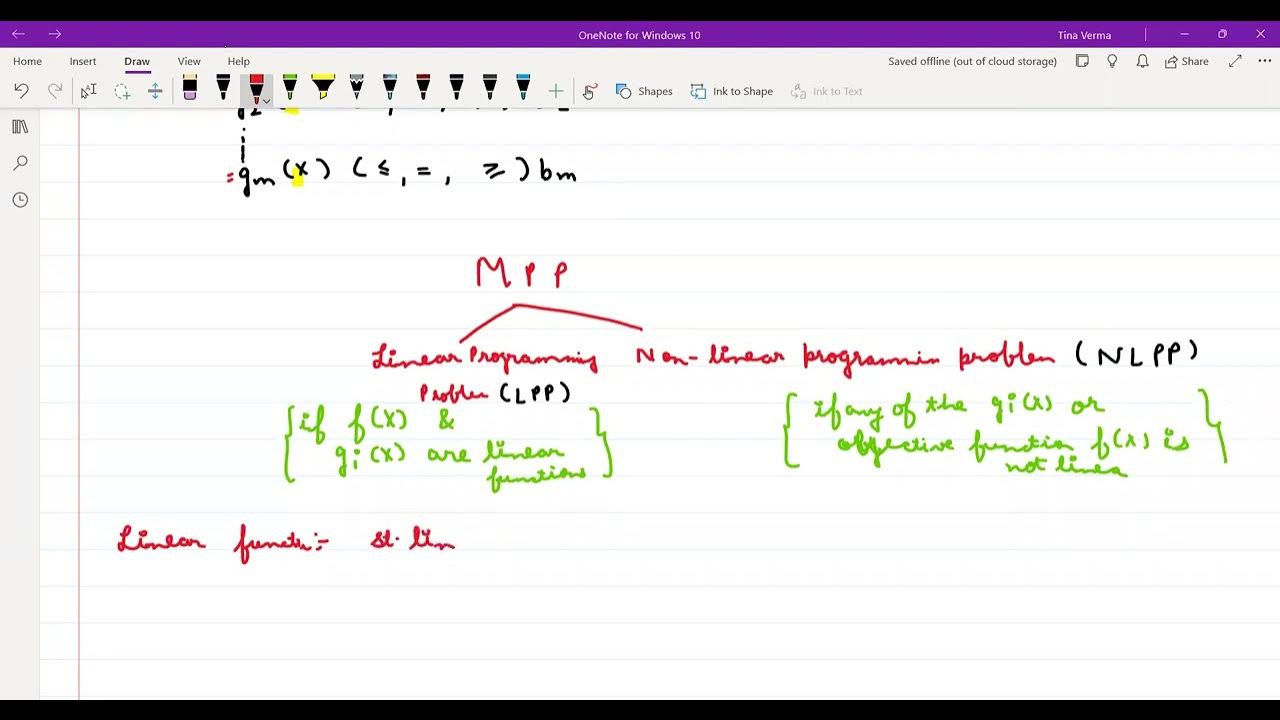 OneNote for Windows 10
Tina Verma
Home Insert Draw View Help
Saved offline (out of cloud storage)
Share
Shapes
Ink to Shape
Ink to Text
= gm (x) ( ≤ , = , ≥ ) bm
MPP
Linear Programming Non-linear programmin problem (NLPP)
Problem (LPP)
{ if f(x) & }
gi(x) are linear
functions
{ if any of the gi(x) or }
objective function f(x) is
not linea
Linear functn:- st. lin